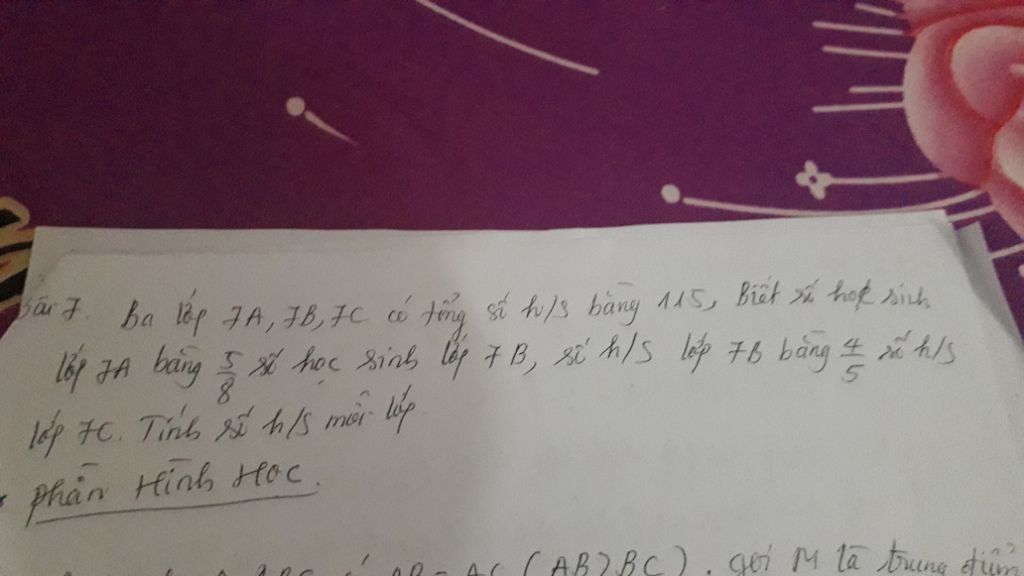 Bài 7. Ba lớp 7A, 7B, 7C có tổng số h/s bằng 115, Biết số học sinh
lớp 7A bằng 5/8 số học sinh lớp 7B, số h/s lớp 7B bằng 4/5 số h/s
lớp 7C. Tính số h/s mỗi lớp.
Phần Hình Học.
ABC có AB = AC (AB > BC). gọi M là trung điểm